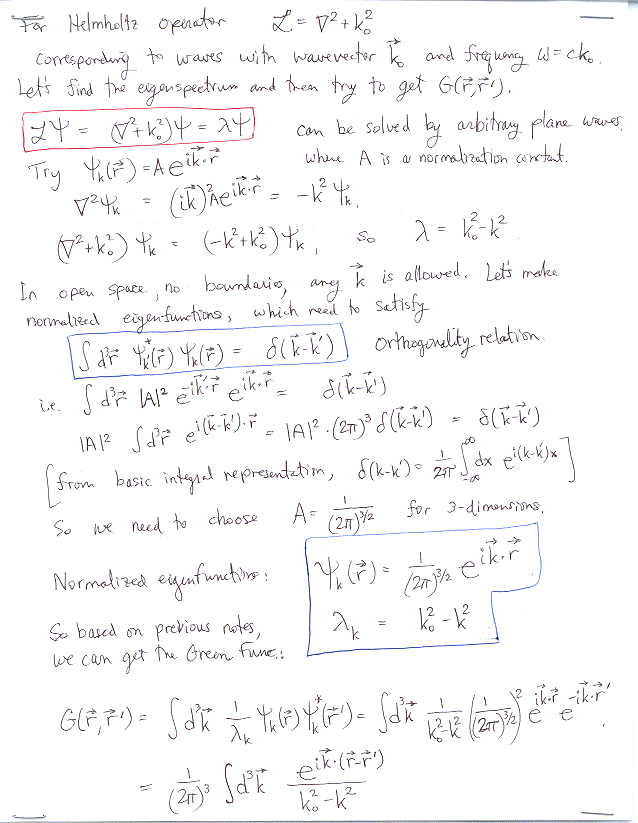 For Helmholtz operator ℒ = ∇² + k₀²
corresponding to waves with wavevector k⃗₀ and frequency ω = ck₀.
Let's find the eigenspectrum and then try to get G(r⃗,r⃗').
ℒΨ = (∇²+k₀²)Ψ = λΨ can be solved by arbitrary plane waves,
Try Ψₖ(r⃗) = A e^{ik⃗·r⃗} where A is a normalization constant.
∇²Ψₖ = (ik⃗)² A e^{ik⃗·r⃗} = -k² Ψₖ.
(∇²+k₀²) Ψₖ = (-k²+k₀²) Ψₖ, so λ = k₀²-k².
In open space, no boundaries, any k⃗ is allowed. Let's make
normalized eigenfunctions, which need to satisfy
∫d³r⃗ Ψ*ₖ'(r⃗) Ψₖ(r⃗) = δ(k⃗-k⃗') orthogonality relation.
i.e. ∫d³r⃗ |A|² e^{-ik⃗'·r⃗} e^{ik⃗·r⃗} = δ(k⃗-k⃗')
|A|² ∫d³r⃗ e^{i(k⃗-k⃗')·r⃗} = |A|²·(2π)³ δ(k⃗-k⃗') = δ(k⃗-k⃗')
[from basic integral representation, δ(k-k') = 1/2π ∫_{-∞}^{∞} dx e^{i(k-k')x}]
So we need to choose A = 1/(2π)^{3/2} for 3-dimensions.
Normalized eigenfunctions: Ψₖ(r⃗) = 1/(2π)^{3/2} e^{ik⃗·r⃗}
λₖ = k₀²-k²
So based on previous notes,
we can get the Green Func.:
G(r⃗,r⃗') = ∫d³k⃗ 1/λₖ Ψₖ(r⃗) Ψₖ*(r⃗') = ∫d³k⃗ 1/(k₀²-k²) (1/(2π)^{3/2})² e^{ik⃗·r⃗} e^{-ik⃗·r⃗'}.
= 1/(2π)³ ∫d³k⃗ e^{ik⃗·(r⃗-r⃗')}/(k₀²-k²)